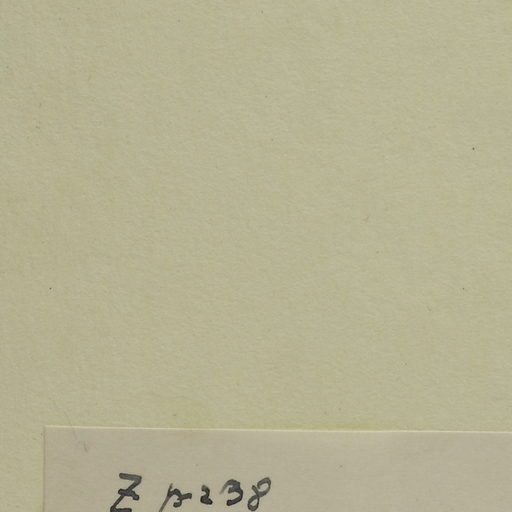 Z p. 238